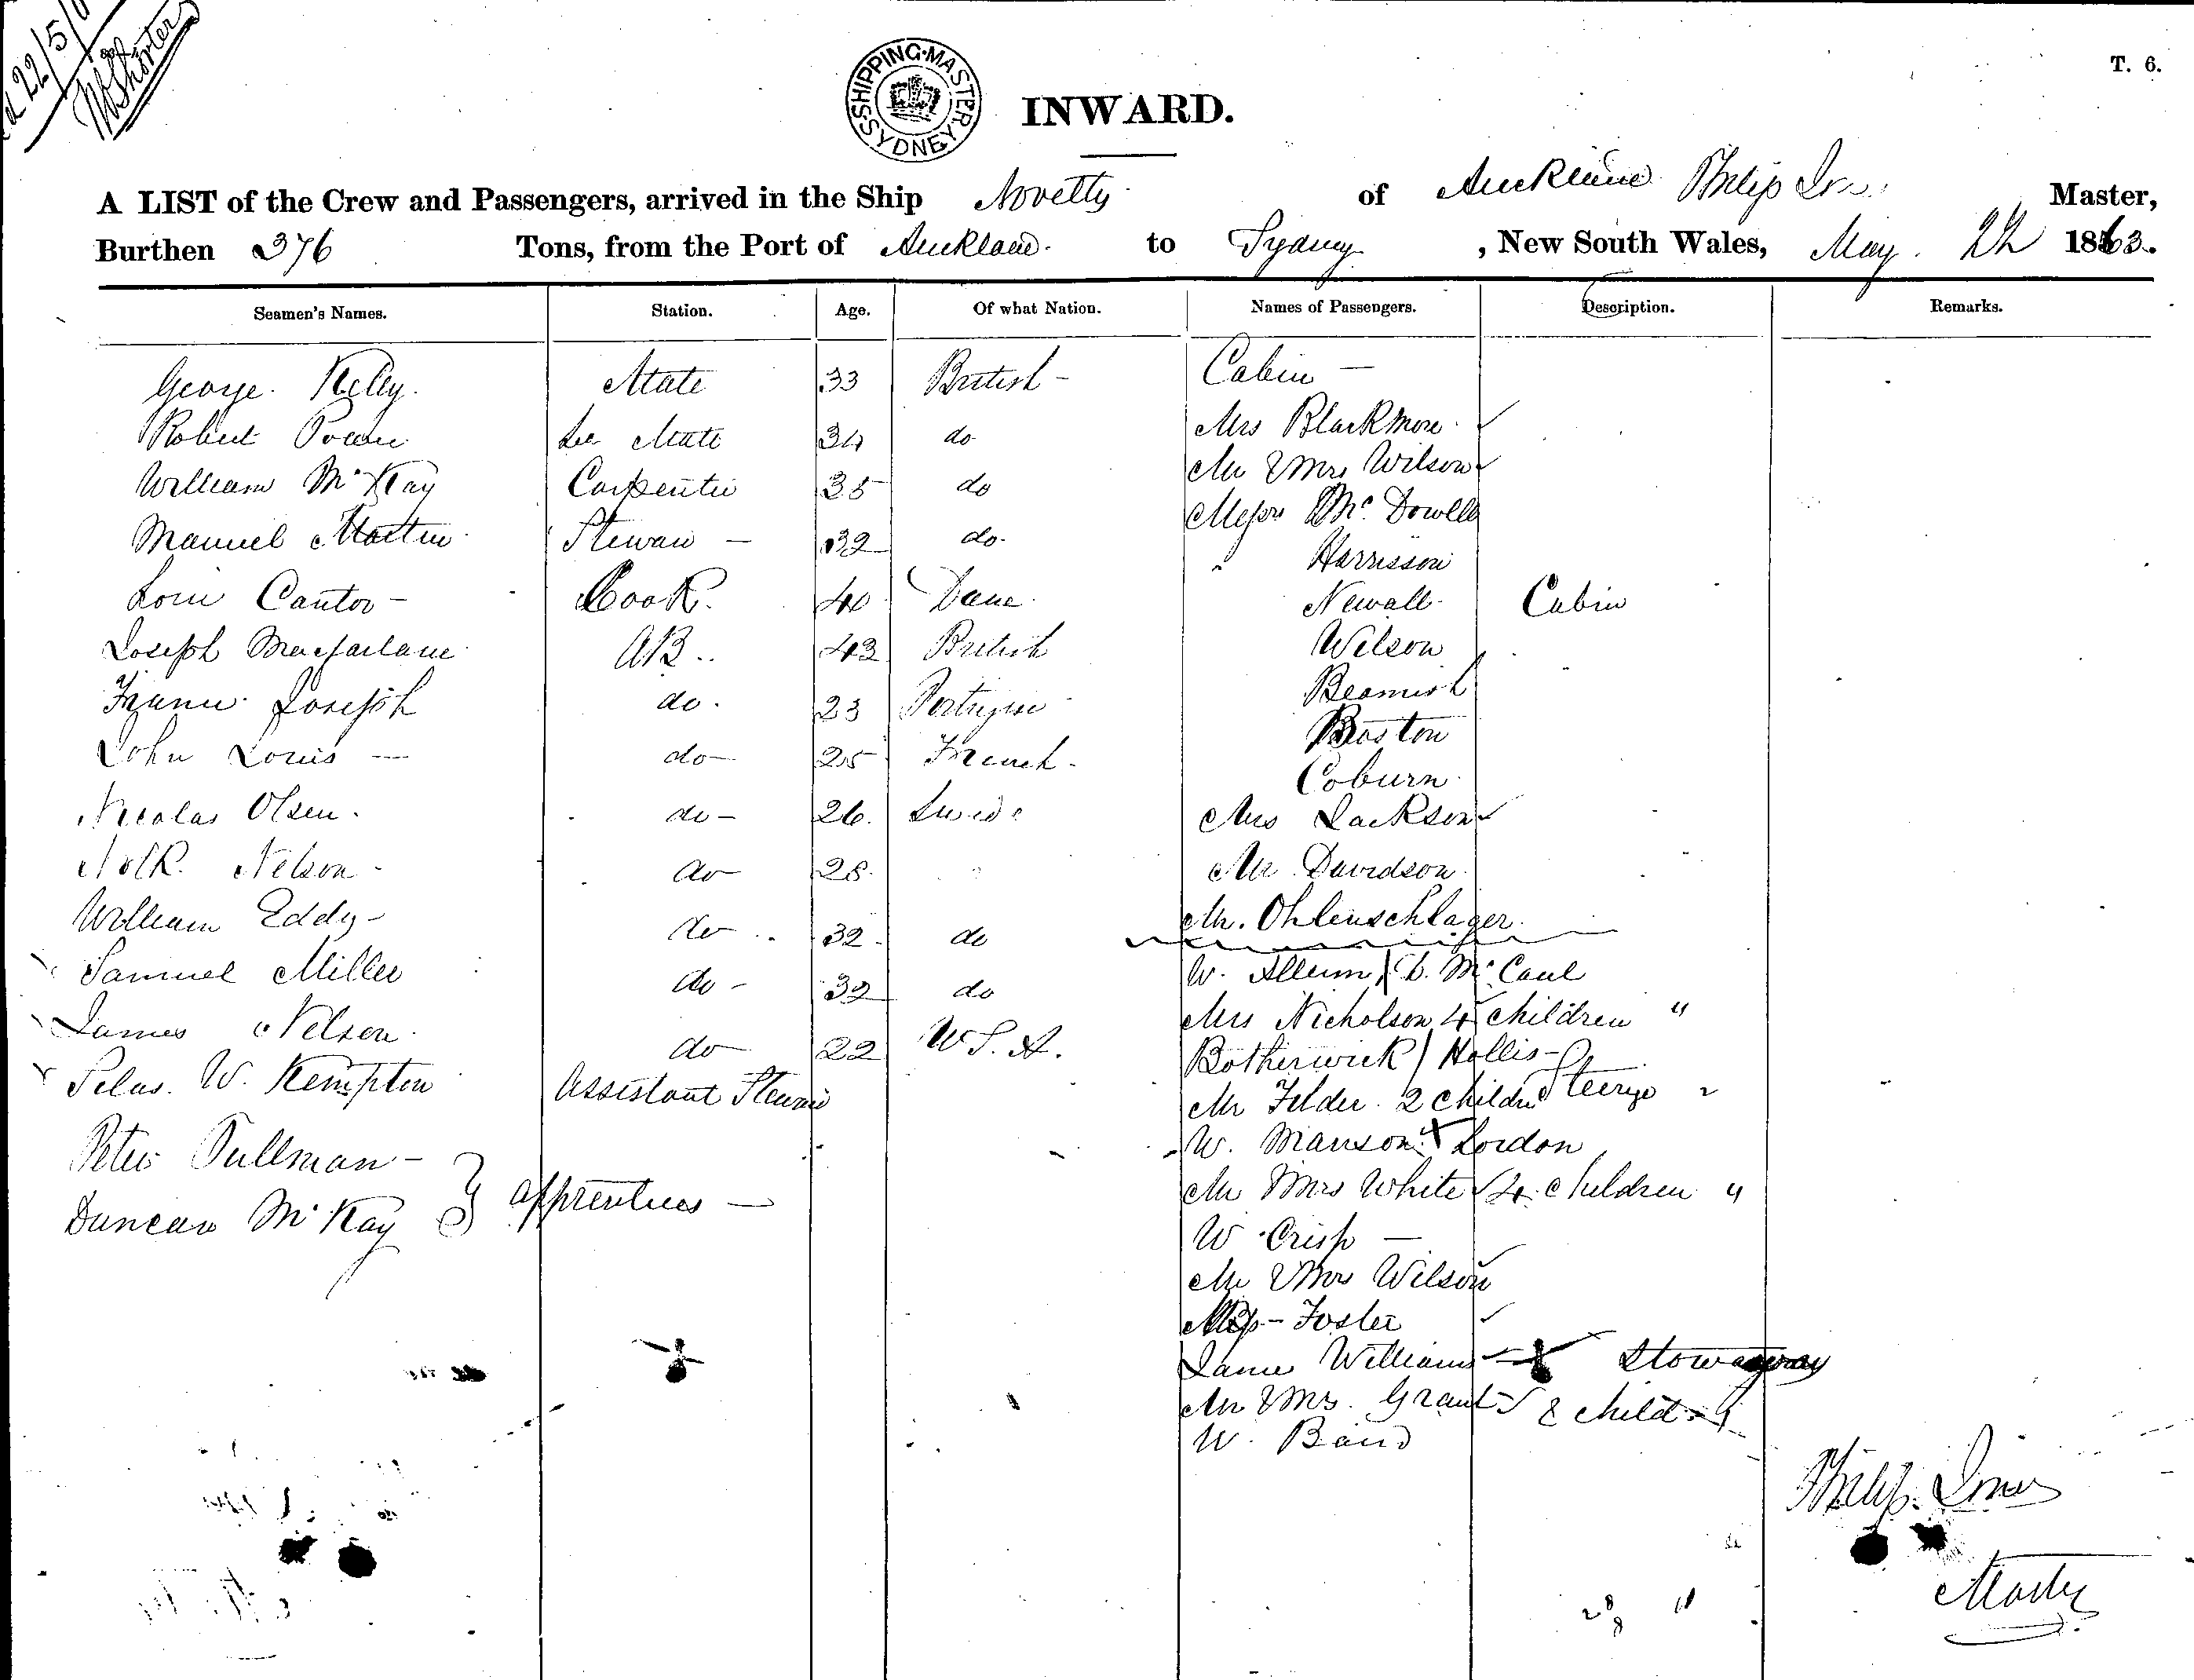 22/5/
W Shorter
SHIPPING MASTER SYDNEY
T. 6.
INWARD.
A LIST of the Crew and Passengers, arrived in the Ship Novelty of Auckland Philip Master,
Burthen 376 Tons, from the Port of Auckland to Sydney, New South Wales, May 22 1863.
Seamen's Names. Station. Age. Of what Nation. Names of Passengers. Description. Remarks.
George Mate 33 British - Cabin -
Robert Mate 34 do Mrs Blackmore
William McKay Carpenter 35 do Mr & Mrs Wilson
Manuel Martin Steward - 32 do Messrs McDowell
" Harrisson
Cantor - Cook. 40 Dane Newall Cabin
Joseph Macfarlane AB.. 43 British Wilson
Joseph do. 23 Portuguese Beamish
John Louis - do - 25 French - Boston
Coburn
Nicolas Olsen. do - 26. Swede Mrs Jackson
Nelson - do 28. " Mr Davidson
William Eddy - do 32 do Mr. Ohlenschlager
Samuel Miller do - 32 do W. Allum / McCaul
James Nelson do 22 U.S.A. Mrs Nicholson 4 children "
Botherwick / Hollis -
Silas. W. Kempton Assistant Steward Mr Felder. 2 children Steerage "
Peter Pullman - W. Manson Lordon
Duncan McKay } apprentices - Mr Mrs White 4 children "
W Crisp -
Mr & Mrs Wilson
Foster
Williams Stowaway
Mr & Mrs. Grant & child
W. Baird
Philip
Master